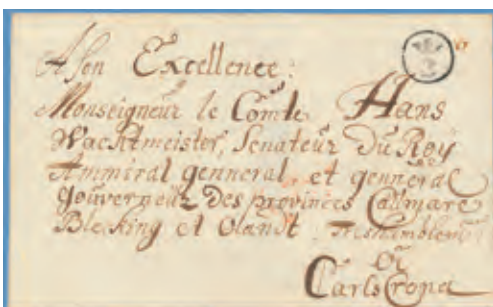 A son Excellence:
Monseigneur le Comte Hans
Wachtmeister, Senateur Du Roÿ
Ammiral genneral, et genneral
Gouverneur des provinces Calmare
Bleking et Olandt Treshumblement
à
CarlsCrona